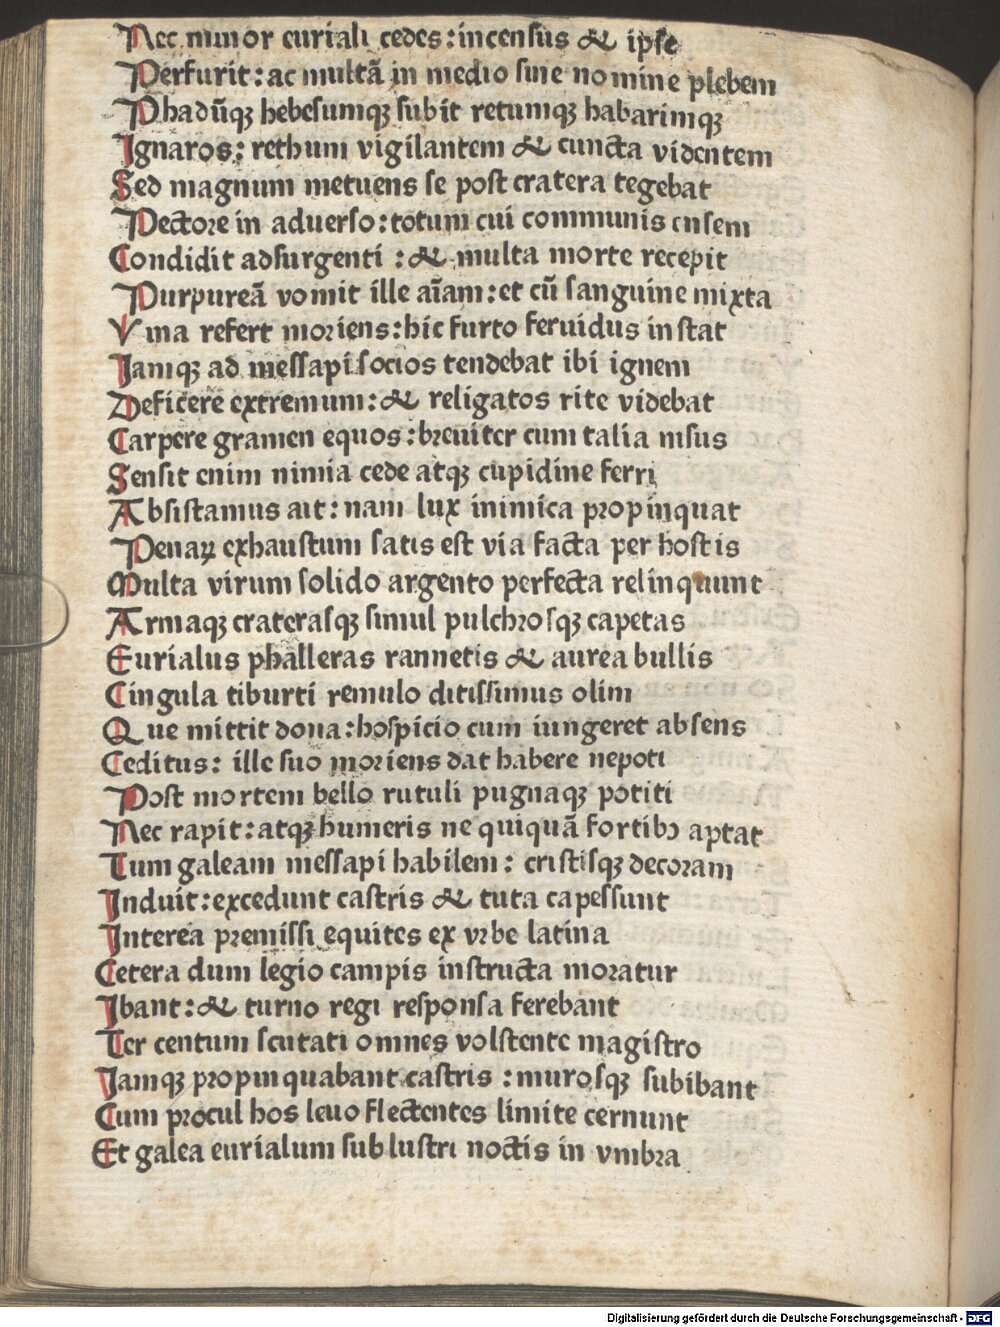 Nec minor euriali cedes: incensus & ipse
Perfurit: ac multā in medio sine nomine plebem
Phadūqꝫ hebesumqꝫ subit retumqꝫ habarimqꝫ
Ignaros: rethum vigilantem & cuncta videntem
Sed magnum metuens se post cratera tegebat
Pectore in aduerso: totum cui communis ensem
Condidit adsurgenti : & multa morte recepit
Purpureā vomit ille aīam: et cū sanguine mixta
Vina refert moriens: hic furto feruidus instat
Jamqꝫ ad messapi socios tendebat ibi ignem
Deficere extremum: & religatos rite videbat
Carpere gramen equos: breuiter cum talia nisus
Sensit enim nimia cede atqꝫ cupidine ferri
Absistamus ait: nam lux inimica propinquat
Penaꝝ exhaustum satis est via facta per hostis
Multa virum solido argento perfecta relinquunt
Armaqꝫ craterasqꝫ simul pulchrosqꝫ capetas
Eurialus phalleras rannetis & aurea bullis
Cingula tiburti remulo ditissimus olim
Que mittit dona: hospicio cum iungeret absens
Ceditus: ille suo moriens dat habere nepoti
Post mortem bello rutuli pugnaqꝫ potiti
Nec rapit: atqꝫ humeris ne quiquā fortibꝰ aptat
Tum galeam messapi habilem: cristisqꝫ decoram
Induit: excedunt castris & tuta capessunt
Interea premissi equites ex vrbe latina
Cetera dum legio campis instructa moratur
Ibant: & turno regi responsa ferebant
Ter centum scutati omnes volstente magistro
Jamqꝫ propinquabant castris : murosqꝫ subibant
Cum procul hos leuo flectentes limite cernunt
Et galea eurialum sublustri noctis in vmbra
Digitalisierung gefördert durch die Deutsche Forschungsgemeinschaft - DFG